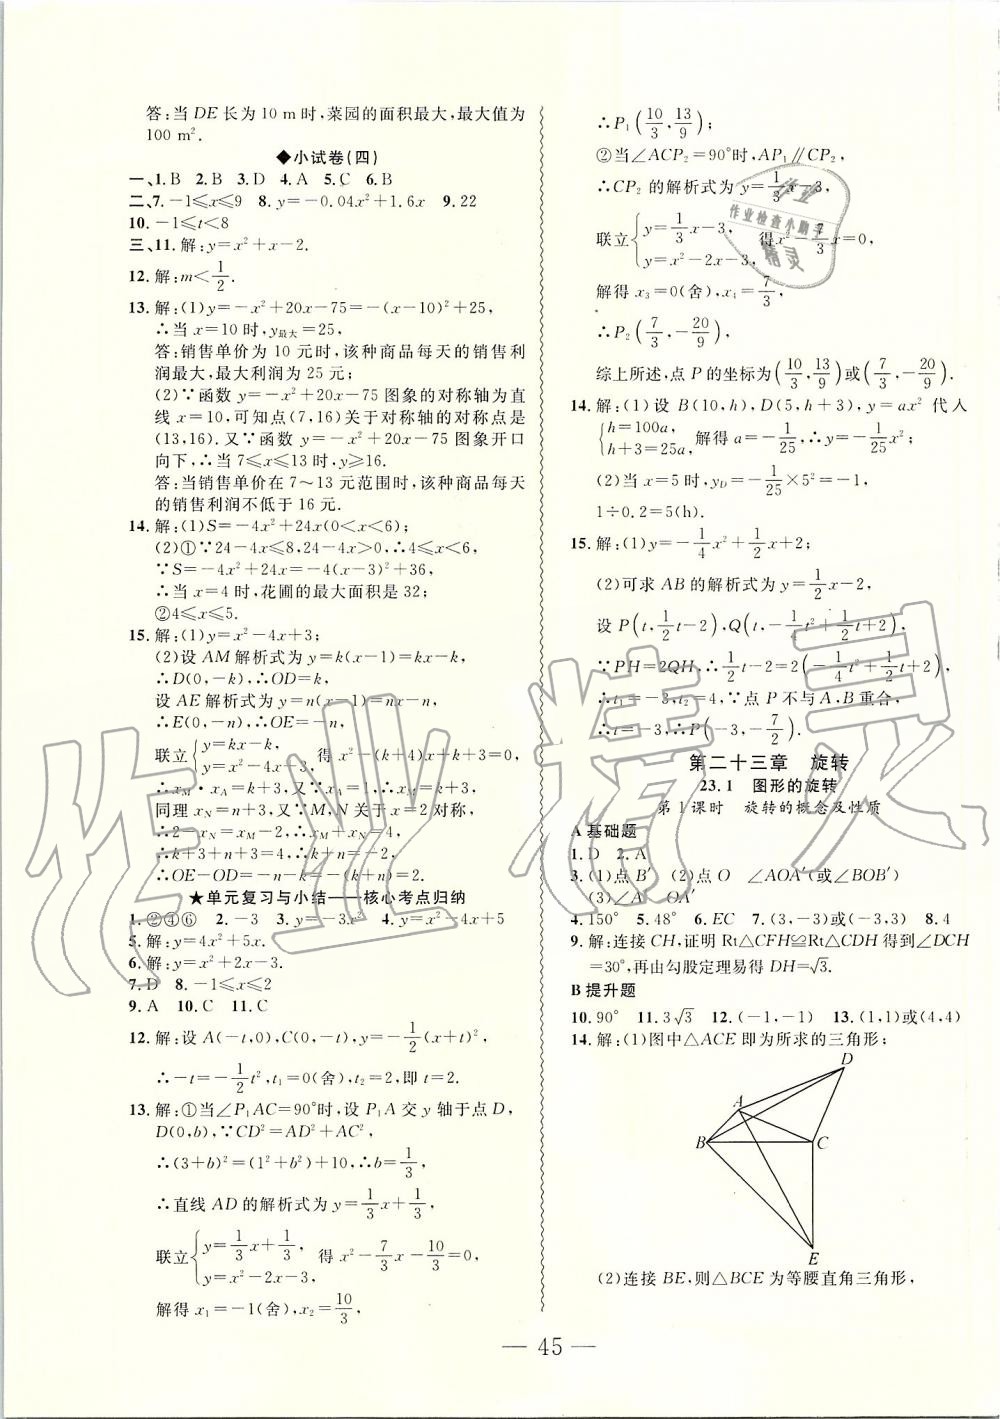 答:当 DE 长为 10 m 时,菜园的面积最大,最大值为
100 m².
◆小试卷(四)
一、1. B 2. B 3. D 4. A 5. C 6. B
二、7. −1≤x≤9 8. y=−0.04x²+1.6x 9. 22
10. −1≤t<8
三、11. 解:y=x²+x−2.
12. 解:m<1/2.
13. 解:(1)y=−x²+20x−75=−(x−10)²+25,
∴当 x=10 时,y最大=25,
答:销售单价为 10 元时,该种商品每天的销售利
润最大,最大利润为 25 元;
(2)∵函数 y=−x²+20x−75 图象的对称轴为直
线 x=10,可知点(7,16)关于对称轴的对称点是
(13,16). 又∵函数 y=−x²+20x−75 图象开口
向下,∴当 7≤x≤13 时,y≥16.
答:当销售单价在 7～13 元范围时,该种商品每天
的销售利润不低于 16 元.
14. 解:(1)S=−4x²+24x(0<x<6);
(2)①∵24−4x≤8,24−4x>0,∴4≤x<6,
∵S=−4x²+24x=−4(x−3)²+36,
∴当 x=4 时,花圃的最大面积是 32;
②4≤x≤5.
15. 解:(1)y=x²−4x+3;
(2)设 AM 解析式为 y=k(x−1)=kx−k,
∴D(0,−k),∴OD=k,
设 AE 解析式为 y=n(x−1)=nx−n,
∴E(0,−n),∴OE=−n,
联立{y=kx−k, y=x²−4x+3, 得 x²−(k+4)x+k+3=0,
∴xM·xA=k+3,∵xA=1,∴xM=k+3,
同理 xN=n+3,又∵M,N 关于 x=2 对称,
∴2−xN=xM−2,∴xM+xN=4,
∴k+3+n+3=4,∴k+n=−2,
∴OE−OD=−n−k=2.
★单元复习与小结——核心考点归纳
1. ②④⑥ 2. −3 3. y=−3x² 4. y=x²−4x+5
5. 解:y=4x²+5x.
6. 解:y=x²+2x−3.
7. D 8. −1≤x≤2
9. A 10. C 11. C
12. 解:设 A(−t,0),C(0,−t),y=−1/2(x+t)²,
∴−t=−1/2t²,t₁=0(舍),t₂=2,即 t=2.
13. 解:①当∠P₁AC=90°时,设 P₁A 交 y 轴于点 D,
D(0,b),∵CD²=AD²+AC²,
∴(3+b)²=(1²+b²)+10,∴b=1/3,
∴直线 AD 的解析式为 y=1/3x+1/3,
联立{y=1/3x+1/3, y=x²−2x−3, 得 x²−7/3x−10/3=0,
解得 x₁=−1(舍),x₂=10/3,
∴P₁(10/3,13/9);
②当∠ACP₂=90°时,AP₁∥CP₂,
∴CP₂ 的解析式为 y=1/3x−3,
联立{y=1/3x−3, y=x²−2x−3, 得 x²−7/3x=0,
解得 x₃=0(舍),x₄=7/3,
∴P₂(7/3,−20/9),
综上所述,点 P 的坐标为(10/3,13/9)或(7/3,−20/9).
14. 解:(1)设 B(10,h),D(5,h+3),y=ax² 代入
{h=100a, h+3=25a, 解得 a=−1/25,∴y=−1/25x²;
(2)当 x=5 时,yD=−1/25×5²=−1,
1÷0.2=5(h).
15. 解:(1)y=−1/4x²+1/2x+2;
(2)可求 AB 的解析式为 y=1/2x−2,
设 P(t,1/2t−2),Q(t,−1/4t²+1/2t+2),
∵PH=2QH,∴1/2t−2=2(−1/4t²+1/2t+2),
∴t₁=−3,t₂=4,∵点 P 不与 A,B 重合,
∴t=−3,∴P(−3,−7/2).
第二十三章 旋转
23.1 图形的旋转
第 1 课时 旋转的概念及性质
A 基础题
1. D 2. A
3. (1)点 B′ (2)点 O ∠AOA′(或∠BOB′)
(3)∠A′
4. 150° 5. 48° 6. EC 7. (3,−3)或(−3,3) 8. 4
9. 解:连接 CH,证明 Rt△CFH≌Rt△CDH 得到∠DCH
=30°,再由勾股定理易得 DH=√3.
B 提升题
10. 90° 11. 3√3 12. (−1,−1) 13. (1,1)或(4,4)
14. 解:(1)图中△ACE 即为所求的三角形;
D
A
B
C
E
(2)连接 BE,则△BCE 为等腰直角三角形,
— 45 —
作业检查小助手
精灵
作业精灵